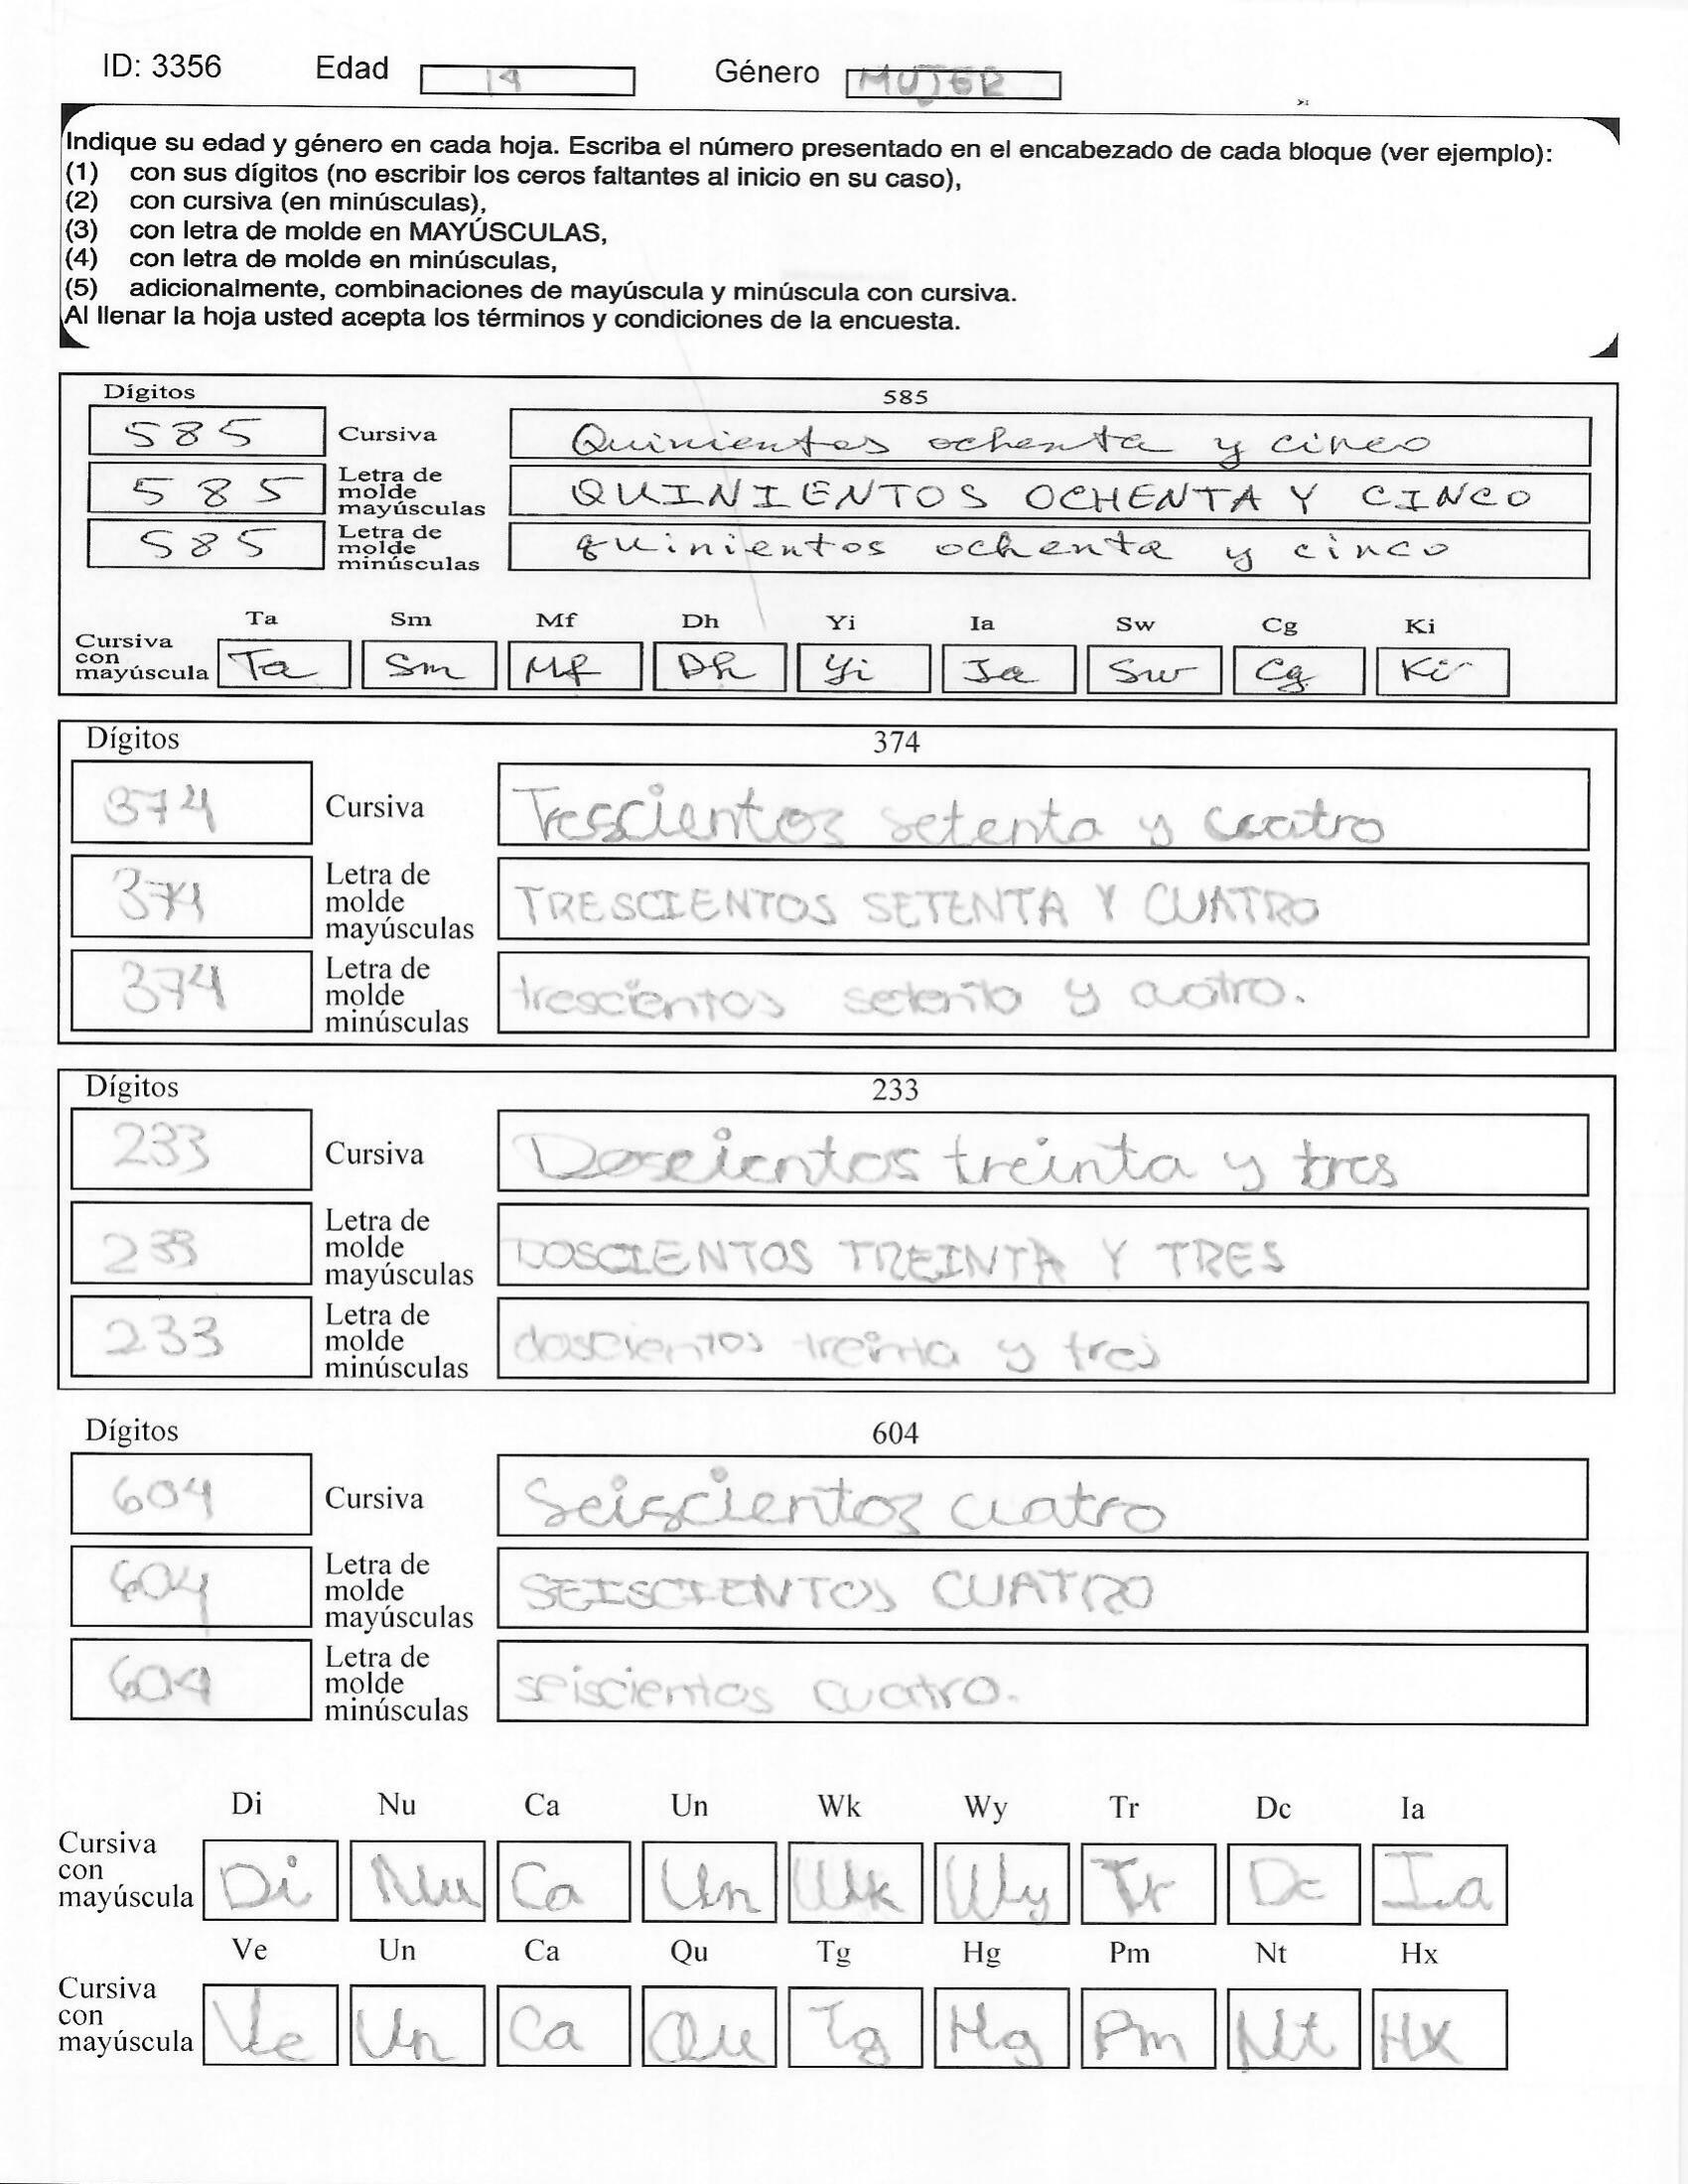 ID: 3356 Edad 19 Género MUJER
Indique su edad y género en cada hoja. Escriba el número presentado en el encabezado de cada bloque (ver ejemplo):
(1) con sus dígitos (no escribir los ceros faltantes al inicio en su caso),
(2) con cursiva (en minúsculas),
(3) con letra de molde en MAYÚSCULAS,
(4) con letra de molde en minúsculas,
(5) adicionalmente, combinaciones de mayúscula y minúscula con cursiva.
Al llenar la hoja usted acepta los términos y condiciones de la encuesta.
Dígitos 585
585 Cursiva Quinientos ochenta y cinco
585 Letra de molde mayúsculas QUINIENTOS OCHENTA Y CINCO
585 Letra de molde minúsculas quinientos ochenta y cinco
Ta Sm Mf Dh Yi Ia Sw Cg Ki
Cursiva con mayúscula Ta Sm Mf Dh Yi Ia Sw Cg Ki
Dígitos 374
374 Cursiva Trescientos setenta y cuatro
374 Letra de molde mayúsculas TRESCIENTOS SETENTA Y CUATRO
374 Letra de molde minúsculas trescientos setenta y cuatro.
Dígitos 233
233 Cursiva Doscientos treinta y tres
233 Letra de molde mayúsculas DOSCIENTOS TREINTA Y TRES
233 Letra de molde minúsculas doscientos treinta y tres
Dígitos 604
604 Cursiva Seiscientos cuatro
604 Letra de molde mayúsculas SEISCIENTOS CUATRO
604 Letra de molde minúsculas seiscientos cuatro.
Di Nu Ca Un Wk Wy Tr Dc Ia
Cursiva con mayúscula Di Nu Ca Un Wk Wy Tr Dc Ia
Ve Un Ca Qu Tg Hg Pm Nt Hx
Cursiva con mayúscula Ve Un Ca Qu Tg Hg Pm Nt Hx